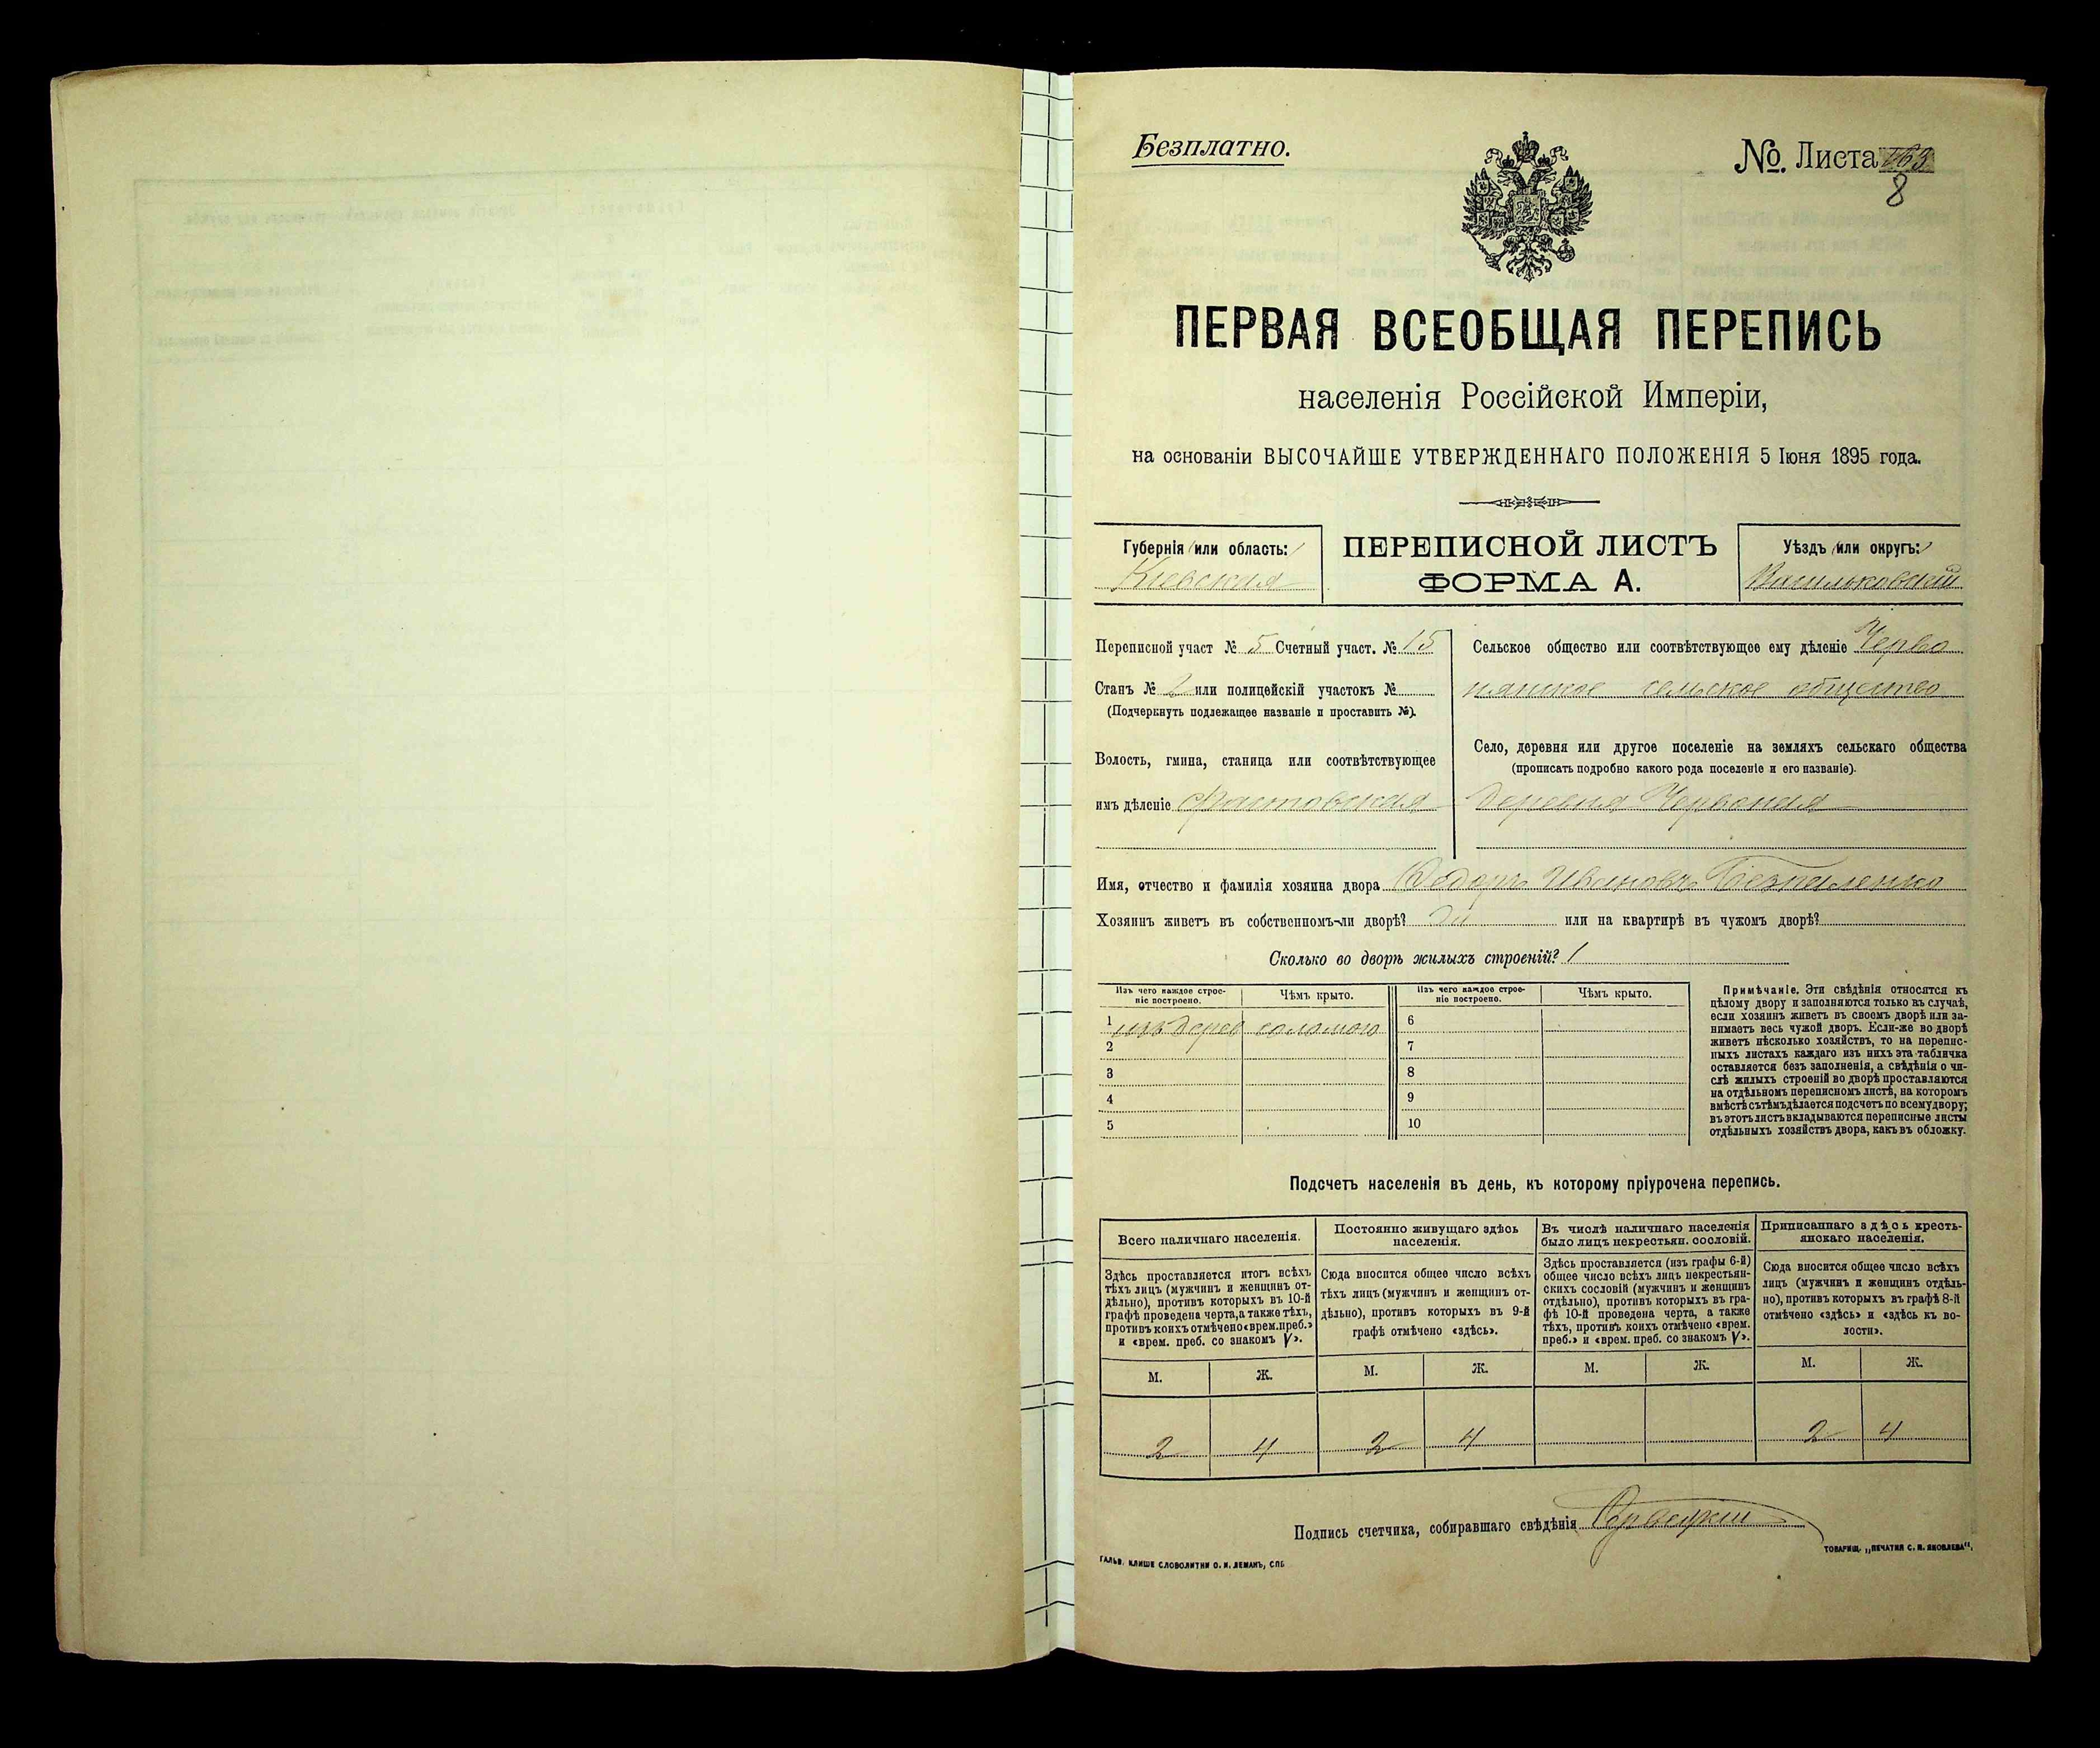 Безплатно.
№. Листа
8
ПЕРВАЯ ВСЕОБЩАЯ ПЕРЕПИСЬ
населенія Россійской Имперіи,
на основаніи ВЫСОЧАЙШЕ УТВЕРЖДЕННАГО ПОЛОЖЕНІЯ 5 Іюня 1895 года.
Губернія или область:
Кіевская
ПЕРЕПИСНОЙ ЛИСТЪ
ФОРМА А.
Уѣздъ или округъ:
Васильковскій
Переписной участ № 5 Счетный участ. № 15
Станъ № 2 или полицейскій участокъ №
(Подчеркнуть подлежащее названіе и проставить №).
Волость, гмина, станица или соотвѣтствующее
имъ дѣленіе Фастовская
Сельское общество или соотвѣтствующее ему дѣленіе Черво
нянское сельское общество
Село, деревня или другое поселеніе на земляхъ сельскаго общества
(прописать подробно какого рода поселеніе и его названіе).
деревня Червоная
Имя, отчество и фамилія хозяина двора Ѳедоръ Ивановъ
Хозяинъ живетъ въ собственномъ-ли дворѣ? или на квартирѣ въ чужомъ дворѣ?
Сколько во дворѣ жилыхъ строеній? 1
Изъ чего каждое строе-
ніе построено.
Чѣмъ крыто.
Изъ чего каждое строе-
ніе построено.
Чѣмъ крыто.
1 изъ дерев соломою
2
3
4
5
6
7
8
9
10
Примѣчаніе. Эти свѣдѣнія относятся къ
цѣлому двору и заполняются только въ случаѣ,
если хозяинъ живетъ въ своемъ дворѣ или за-
нимаетъ весь чужой дворъ. Если-же во дворѣ
живетъ нѣсколько хозяйствъ, то на перепис-
ныхъ листахъ каждаго изъ нихъ эта табличка
оставляется безъ заполненія, а свѣдѣнія о чи-
слѣ жилыхъ строеній во дворѣ проставляются
на отдѣльномъ переписномъ листѣ, на которомъ
вмѣстѣ съ тѣмъ дѣлается подсчетъ по всему двору;
въ этотъ листъ вкладываются переписные листы
отдѣльныхъ хозяйствъ двора, какъ въ обложку.
Подсчетъ населенія въ день, къ которому пріурочена перепись.
Всего наличнаго населенія.
Здѣсь проставляется итогъ всѣхъ
тѣхъ лицъ (мужчинъ и женщинъ от-
дѣльно), противъ которыхъ въ 10-й
графѣ проведена черта, а также тѣхъ,
противъ коихъ отмѣчено «врем. преб.»
и «врем. преб. со знакомъ V».
М. Ж.
2 4
Постоянно живущаго здѣсь
населенія.
Сюда вносится общее число всѣхъ
тѣхъ лицъ (мужчинъ и женщинъ от-
дѣльно), противъ которыхъ въ 9-й
графѣ отмѣчено «здѣсь».
М. Ж.
2 4
Въ числѣ наличнаго населенія
было лицъ некрестьян. сословій.
Здѣсь проставляется (изъ графы 6-й)
общее число всѣхъ лицъ некрестьян-
скихъ сословій (мужчинъ и женщинъ
отдѣльно), противъ которыхъ въ гра-
фѣ 10-й проведена черта, а также
тѣхъ, противъ коихъ отмѣчено «врем.
преб.» и «врем. преб. со знакомъ V».
М. Ж.
Приписаннаго здѣсь кресть-
янскаго населенія.
Сюда вносится общее число всѣхъ
лицъ (мужчинъ и женщинъ отдѣль-
но), противъ которыхъ въ графѣ 8-й
отмѣчено «здѣсь» и «здѣсь къ во-
лости».
М. Ж.
2 4
Подпись счетчика, собиравшаго свѣдѣнія
ГАЛЬВ. КЛИШЕ СЛОВОЛИТНИ О. И. ЛЕМАНЪ, СПБ
ТОВАРИЩ. „ПЕЧАТНЯ С. П. ЯКОВЛЕВА“.